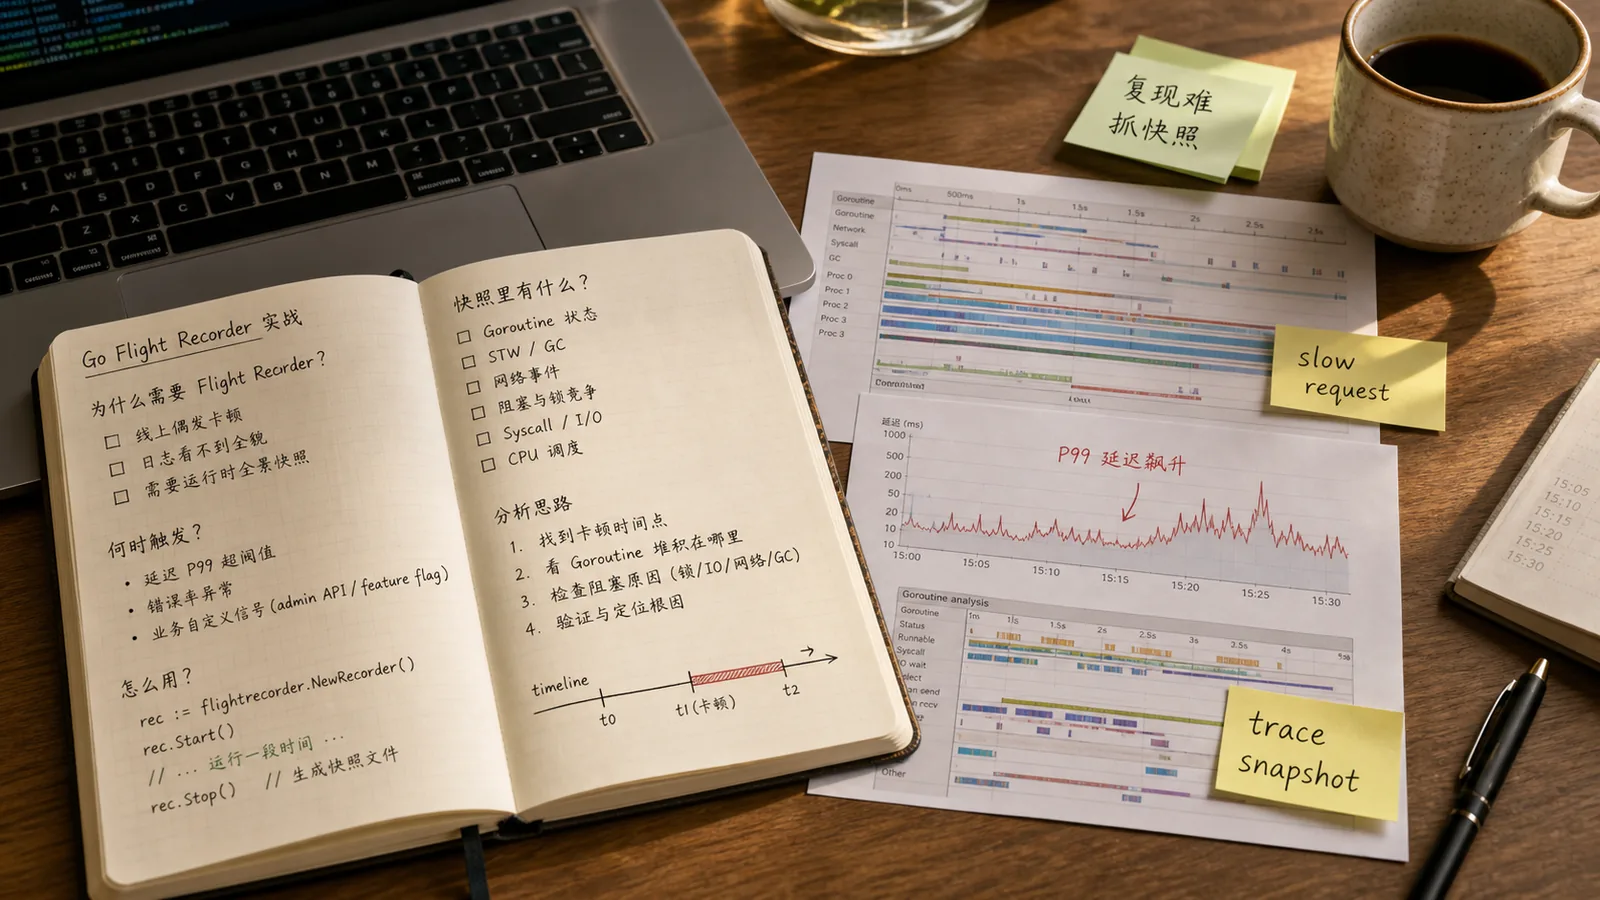 Go Flight Recorder 实战
为什么需要 Flight Recorder?
线上偶发卡顿
日志看不到全貌
需要运行时全景快照
何时触发?
• 延迟 P99 超阈值
• 错误率异常
• 业务自定义信号 (admin API / feature flag)
怎么用?
rec := flightrecorder.NewRecorder()
rec.Start()
// ... 运行一段时间 ...
rec.Stop() // 生成快照文件
快照里有什么?
Goroutine 状态
STW / GC
网络事件
阻塞与锁竞争
Syscall / I/O
CPU 调度
分析思路
1. 找到卡顿时间点
2. 看 Goroutine 堆积在哪里
3. 检查阻塞原因 (锁/IO/网络/GC)
4. 验证与定位根因
timeline
t0
t1 (卡顿)
t2
复现难
抓快照
0ms 500ms 1s 1.5s 2s 2.5s 2.5s
Goroutine
Goroutine
Network
Syscall
GC
Proc 0
Proc 1
Proc 2
Proc 3
Proc 3
slow
request
延迟 (ms)
1000
500
200
50
20
10
10
P99 延迟飙升
15:00 15:05 15:10 15:15 15:20 15:25 15:30
Goroutine analysis
Goroutine
1m 1.5s 2s 2.5s 3s 3.5s 4s
Status
Runnable
Syscall
O wait
elect
an send
n recv
Other
trace
snapshot
15:05
15:10
15:15
15:20
15:25
15:30